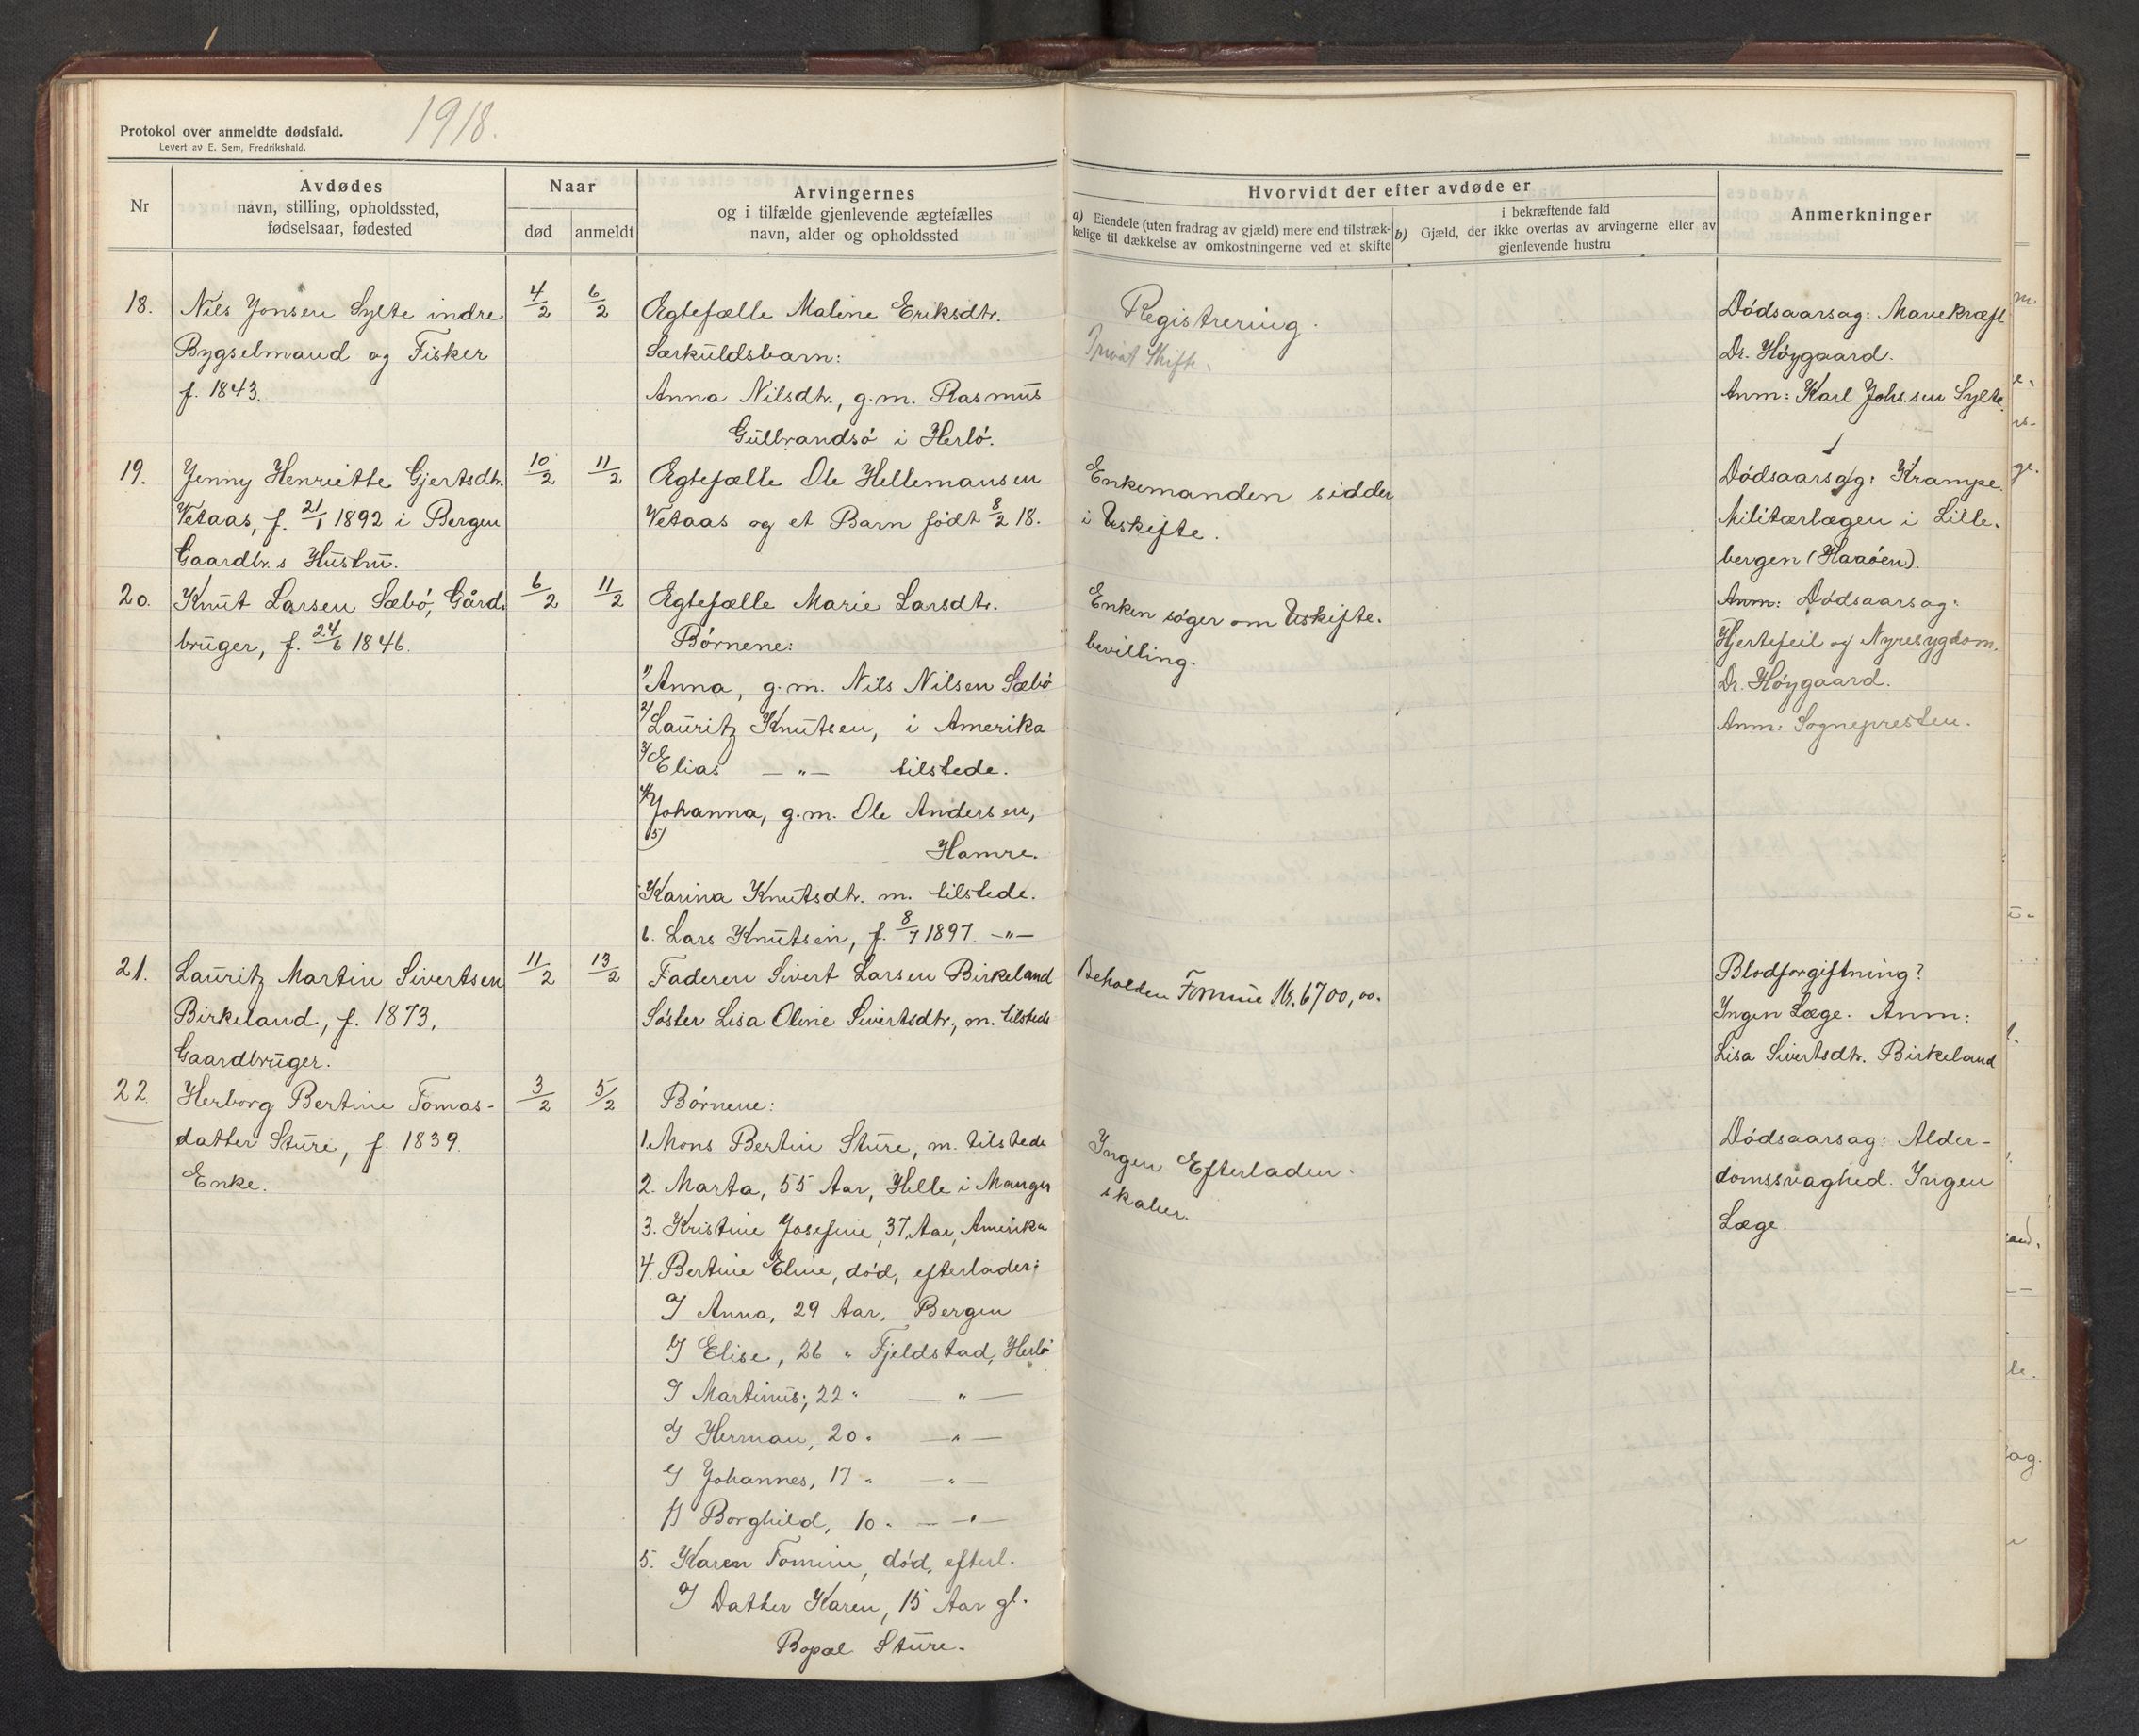 1918.
Protokol over anmeldte dødsfald.
Levert av E. Sem, Fredrikshald.
Nr
Avdødes
navn, stilling, opholdssted,
fødselsaar, fødested
Naar
død
anmeldt
Arvingernes
og i tilfælde gjenlevende ægtefælles
navn, alder og opholdssted
Hvorvidt der efter avdøde er
a) Eiendele (uten fradrag av gjæld) mere end tilstræk-
kelige til dækkelse av omkostningerne ved et skifte
i bekræftende fald
b) Gjæld, der ikke overtas av arvingerne eller av
gjenlevende hustru
Anmerkninger
18.
Nils Jonsen Sylte indre
Bygselmand og Fisker
f. 1843.
4/2
6/2
Ægtefælle Maline Eriksdtr.
Særkuldsbarn:
Anna Nilsdtr., g.m. Rasmus
Gulbrandsö i Herlö.
Registrering.
Privat Skifte.
Dödsaarsag: Mavekræft
Dr. Höygaard.
Anm: Karl Johs.sen Sylte
19.
Jenny Henriette Gjertsdtr.
Vetaas, f. 21/1 1892 i Bergen
Gaardbr.s Hustru.
10/2
11/2
Ægtefælle Ole Hellemansen
Vetaas og et Barn födt 8/2 18.
Enkemanden sidder
i Uskifte.
Dödsaarsag: Krampe.
Militærlægen i Lille-
bergen (Haaöen).
20.
Knut Larsen Sæbö, Gård-
bruger, f. 24/6 1846.
6/2
11/2
Ægtefælle Marie Larsdtr.
Börnene:
1) Anna, g.m. Nils Nilsen Sæbö
2) Lauritz Knutsen, i Amerika
3) Elias —"— tilstede.
4) Johanna, g.m. Ole Andersen,
Hamre.
5) Karina Knutsdtr. m. tilstede.
6. Lars Knutsen, f. 8/7 1897. —"—
Enken söger om Uskifte-
bevilling.
Anm: Dödsaarsag:
Hjertefeil og Nyresygdom.
Dr. Höygaard.
Anm: Sognepresten.
21.
Lauritz Martin Sivertsen
Birkeland, f. 1873,
Gaardbruger.
11/2
13/2
Faderen Sivert Larsen Birkeland
Söster Lisa Oline Sivertsdtr., m. tilstede
Beholden Formue Kr. 6700,00.
Blodforgiftning?
Ingen Læge. Anm:
Lisa Sivertsdtr. Birkeland
22.
Herborg Bertine Tomas-
datter Sture, f. 1839.
Enke.
3/2
5/2
Börnene:
1. Mons Bertin Sture, m. tilstede
2. Marta, 55 Aar, Helle i Manger
3. Kristine Josefine, 37 Aar, Amerika
4. Bertine Eline, död, efterlader:
a) Anna, 29 Aar, Bergen
b) Elise, 26 " Fjeldstad, Herlö
c) Martinus, 22 " —"—
d) Herman, 20 " —"—
e) Johannes, 17 " —"—
f) Borghild, 10 " —"—
5. Karen Tomine, död, efterl.
a) Datter Karen, 15 Aar gl.
Bopæl Sture.
Ingen Efterladen-
skaber.
Dödsaarsag: Alder-
domssvaghed. Ingen
Læge.